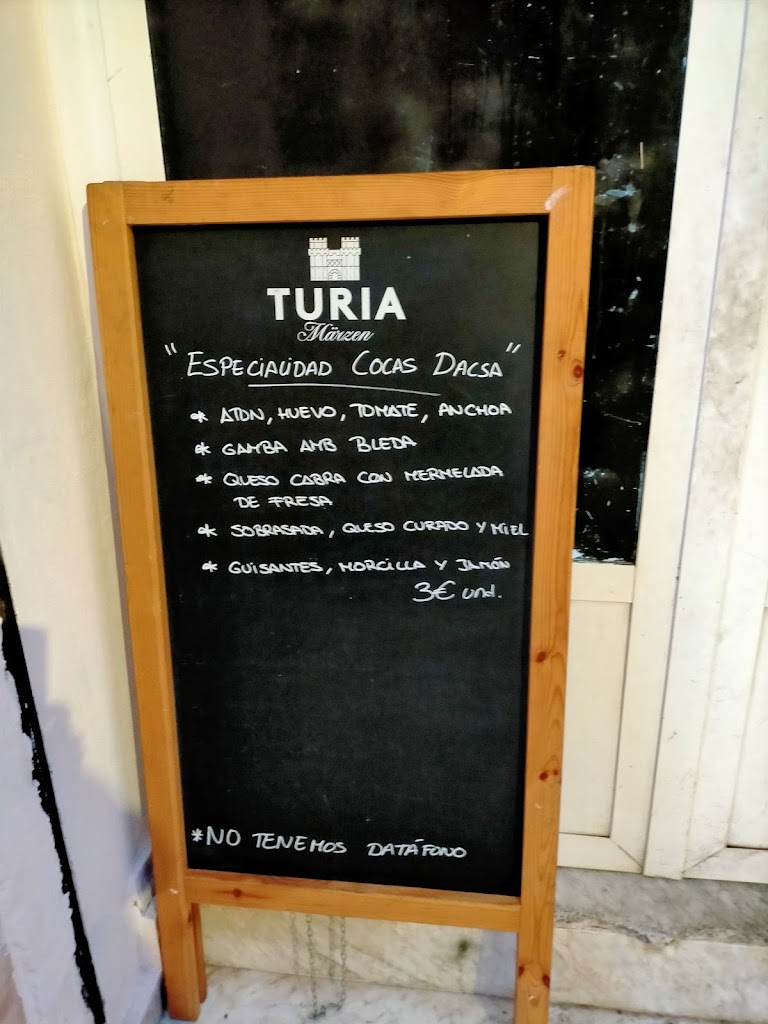 TURIA
Märzen
"ESPECIALIDAD COCAS DACSA"
* ATÚN, HUEVO, TOMATE, ANCHOA
* GAMBA AMB BLEDA
* QUESO CABRA CON MERMELADA
DE FRESA
* SOBRASADA, QUESO CURADO Y MIEL
* GUISANTES, MORCILLA Y JAMÓN
3€ und.
*NO TENEMOS DATÁFONO